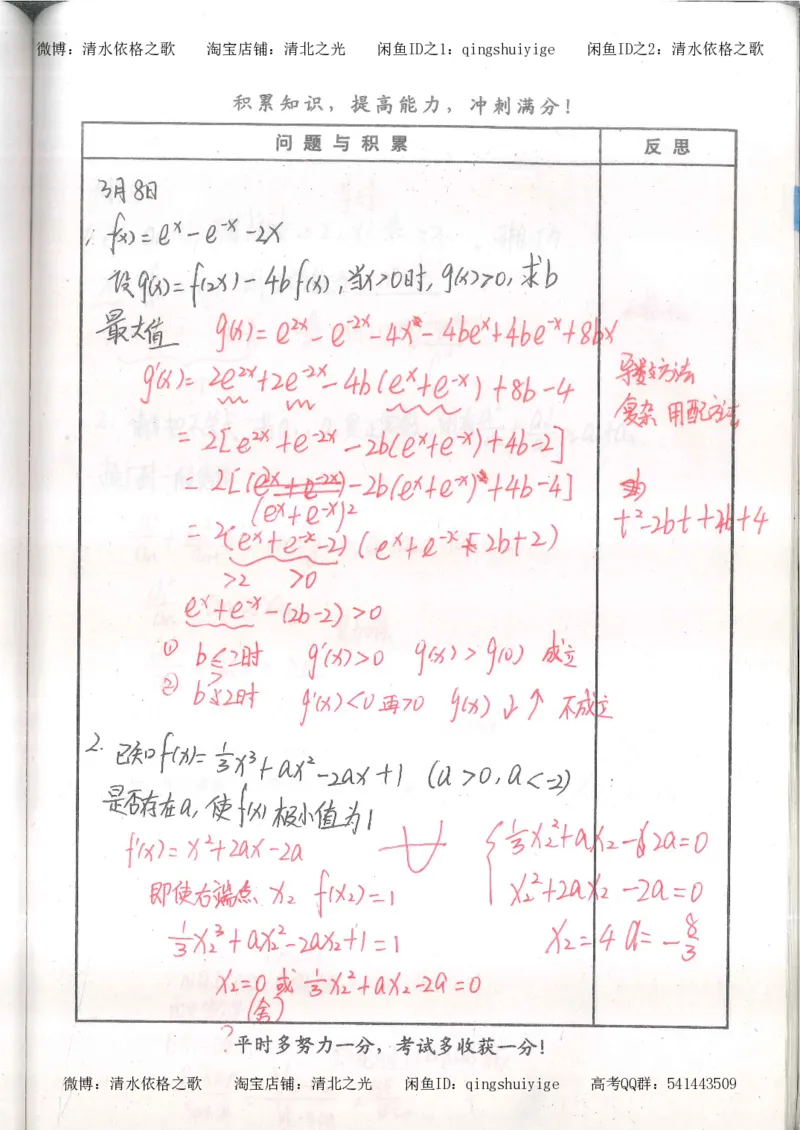 微博：清水依格之歌 淘宝店铺：清北之光 闲鱼ID之1：qingshuiyige 闲鱼ID之2：清水依格之歌
积累知识，提高能力，冲刺满分！
问题与积累 反思
3月8日
1. f(x)=eˣ-e⁻ˣ-2x
设g(x)=f(2x)-4bf(x),当x>0时,g(x)>0,求b
最大值 g(x)=e²ˣ-e⁻²ˣ-4x-4beˣ+4be⁻ˣ+8bx
g'(x)=2e²ˣ+2e⁻²ˣ-4b(eˣ+e⁻ˣ)+8b-4
=2[e²ˣ+e⁻²ˣ-2b(eˣ+e⁻ˣ)+4b-2]
=2[(e²ˣ+e⁻²ˣ)-2b(eˣ+e⁻ˣ)+4b-4]
(eˣ+e⁻ˣ)²
=2(eˣ+e⁻ˣ-2)(eˣ+e⁻ˣ-2b+2)
>2 >0
eˣ+e⁻ˣ-(2b-2)>0
① b≤2时 g'(x)>0 g(x)>g(0) 成立
② b>2时 g'(x)<0再>0 g(x)↓↑ 不成立
导数方法
复杂 用配方法
t²-2bt+4b+4
2. 已知f(x)=⅓x³+ax²-2ax+1 (a>0,a<-2)
是否存在a,使f(x)极小值为1
f'(x)=x²+2ax-2a
即使右端点 x₂ f(x₂)=1
⅓x₂³+ax₂²-2ax₂+1=1
x₂=0 或 ⅓x₂²+ax₂-2a=0
(舍)
⅓x₂²+ax₂-2a=0
x₂²+2ax₂-2a=0
x₂=4 a=-8/3
?
平时多努力一分，考试多收获一分！
微博：清水依格之歌 淘宝店铺：清北之光 闲鱼ID：qingshuiyige 高考QQ群：541443509